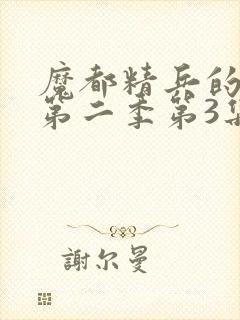 魔都精兵的
第二季第3集
謝尔曼